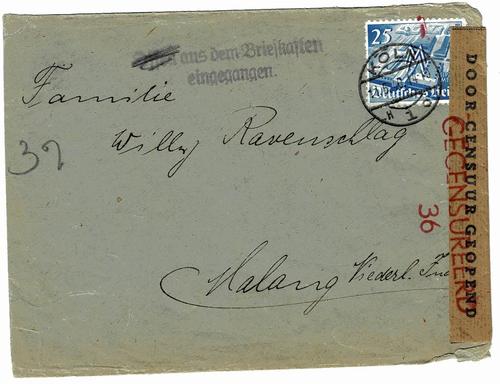 aus dem Briefkasten
eingegangen.
25
Deutsches Rei
KÖLN
1
H
Familie
Willy Ravenschlag
32
Malang Niederl. Ind
DOOR CENSUUR GEOPEND
GECENSUREERD
36